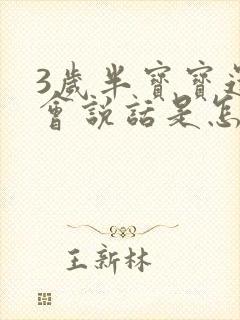 3歲半寶寶還
會說話是怎
王新林